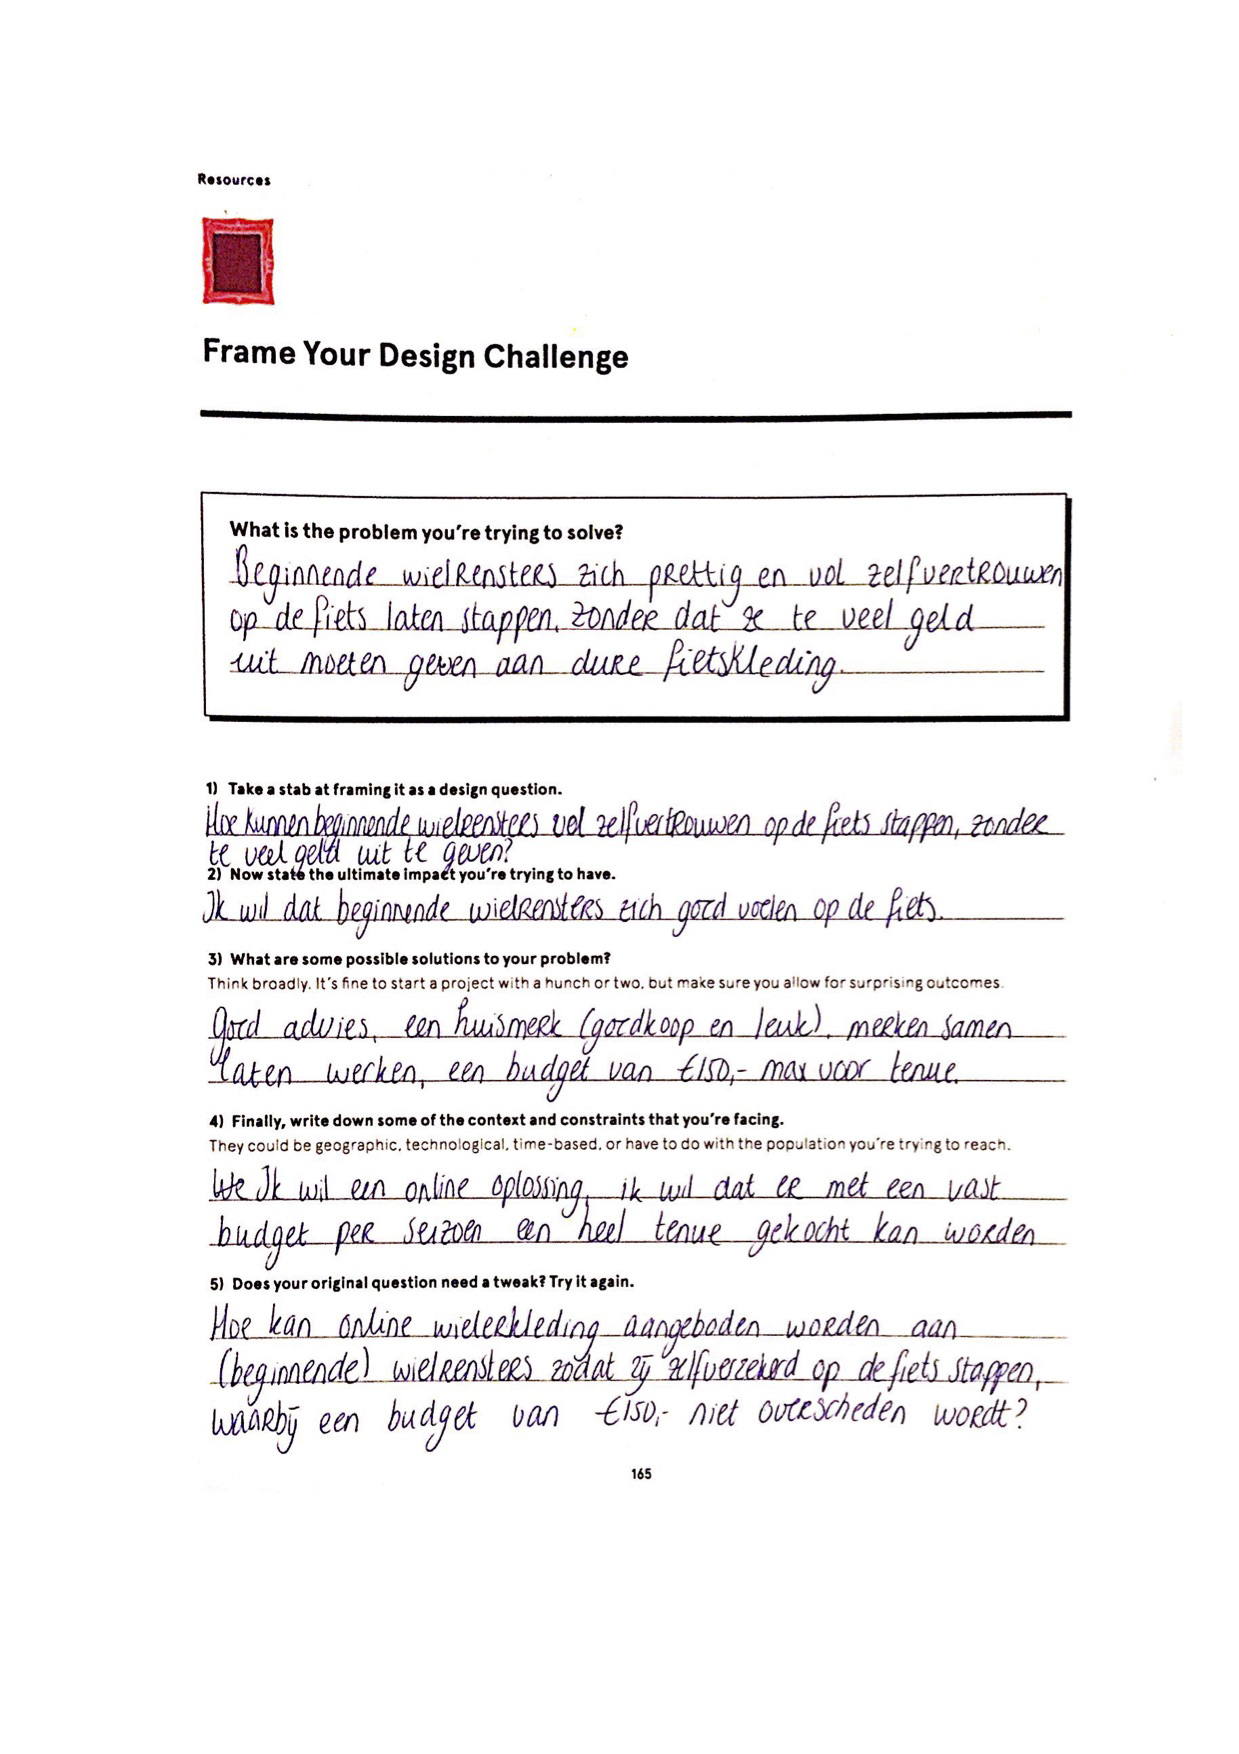 Resources
Frame Your Design Challenge
What is the problem you're trying to solve?
Beginnende wielrensters zich prettig en vol zelfvertrouwen
op de fiets laten stappen, zonder dat ze te veel geld
uit moeten geven aan dure fietskleding.
1) Take a stab at framing it as a design question.
Hoe kunnen beginnende wielrensters vol zelfvertrouwen op de fiets stappen, zonder
te veel geld uit te geven?
2) Now state the ultimate impact you're trying to have.
Ik wil dat beginnende wielrensters zich goed voelen op de fiets.
3) What are some possible solutions to your problem?
Think broadly. It's fine to start a project with a hunch or two, but make sure you allow for surprising outcomes.
Goed advies, een huismerk (goedkoop en leuk), merken samen
laten werken, een budget van €150,- max voor tenue.
4) Finally, write down some of the context and constraints that you're facing.
They could be geographic, technological, time-based, or have to do with the population you're trying to reach.
We Ik wil een online oplossing, ik wil dat er met een vast
budget per seizoen een heel tenue gekocht kan worden
5) Does your original question need a tweak? Try it again.
Hoe kan online wielerkleding aangeboden worden aan
(beginnende) wielrensters zodat zij zelfverzekerd op de fiets stappen,
waarbij een budget van €150,- niet overscheden wordt?
165